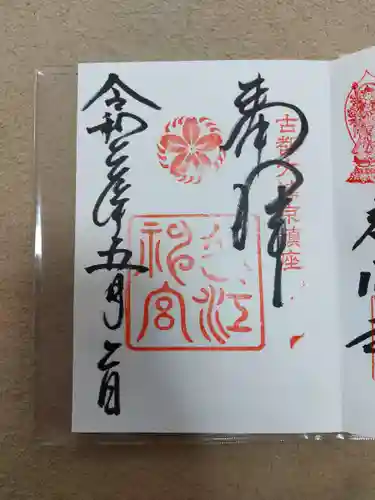 古都大津京鎮座
奉拝
近江
神宮
令和 年五月 日